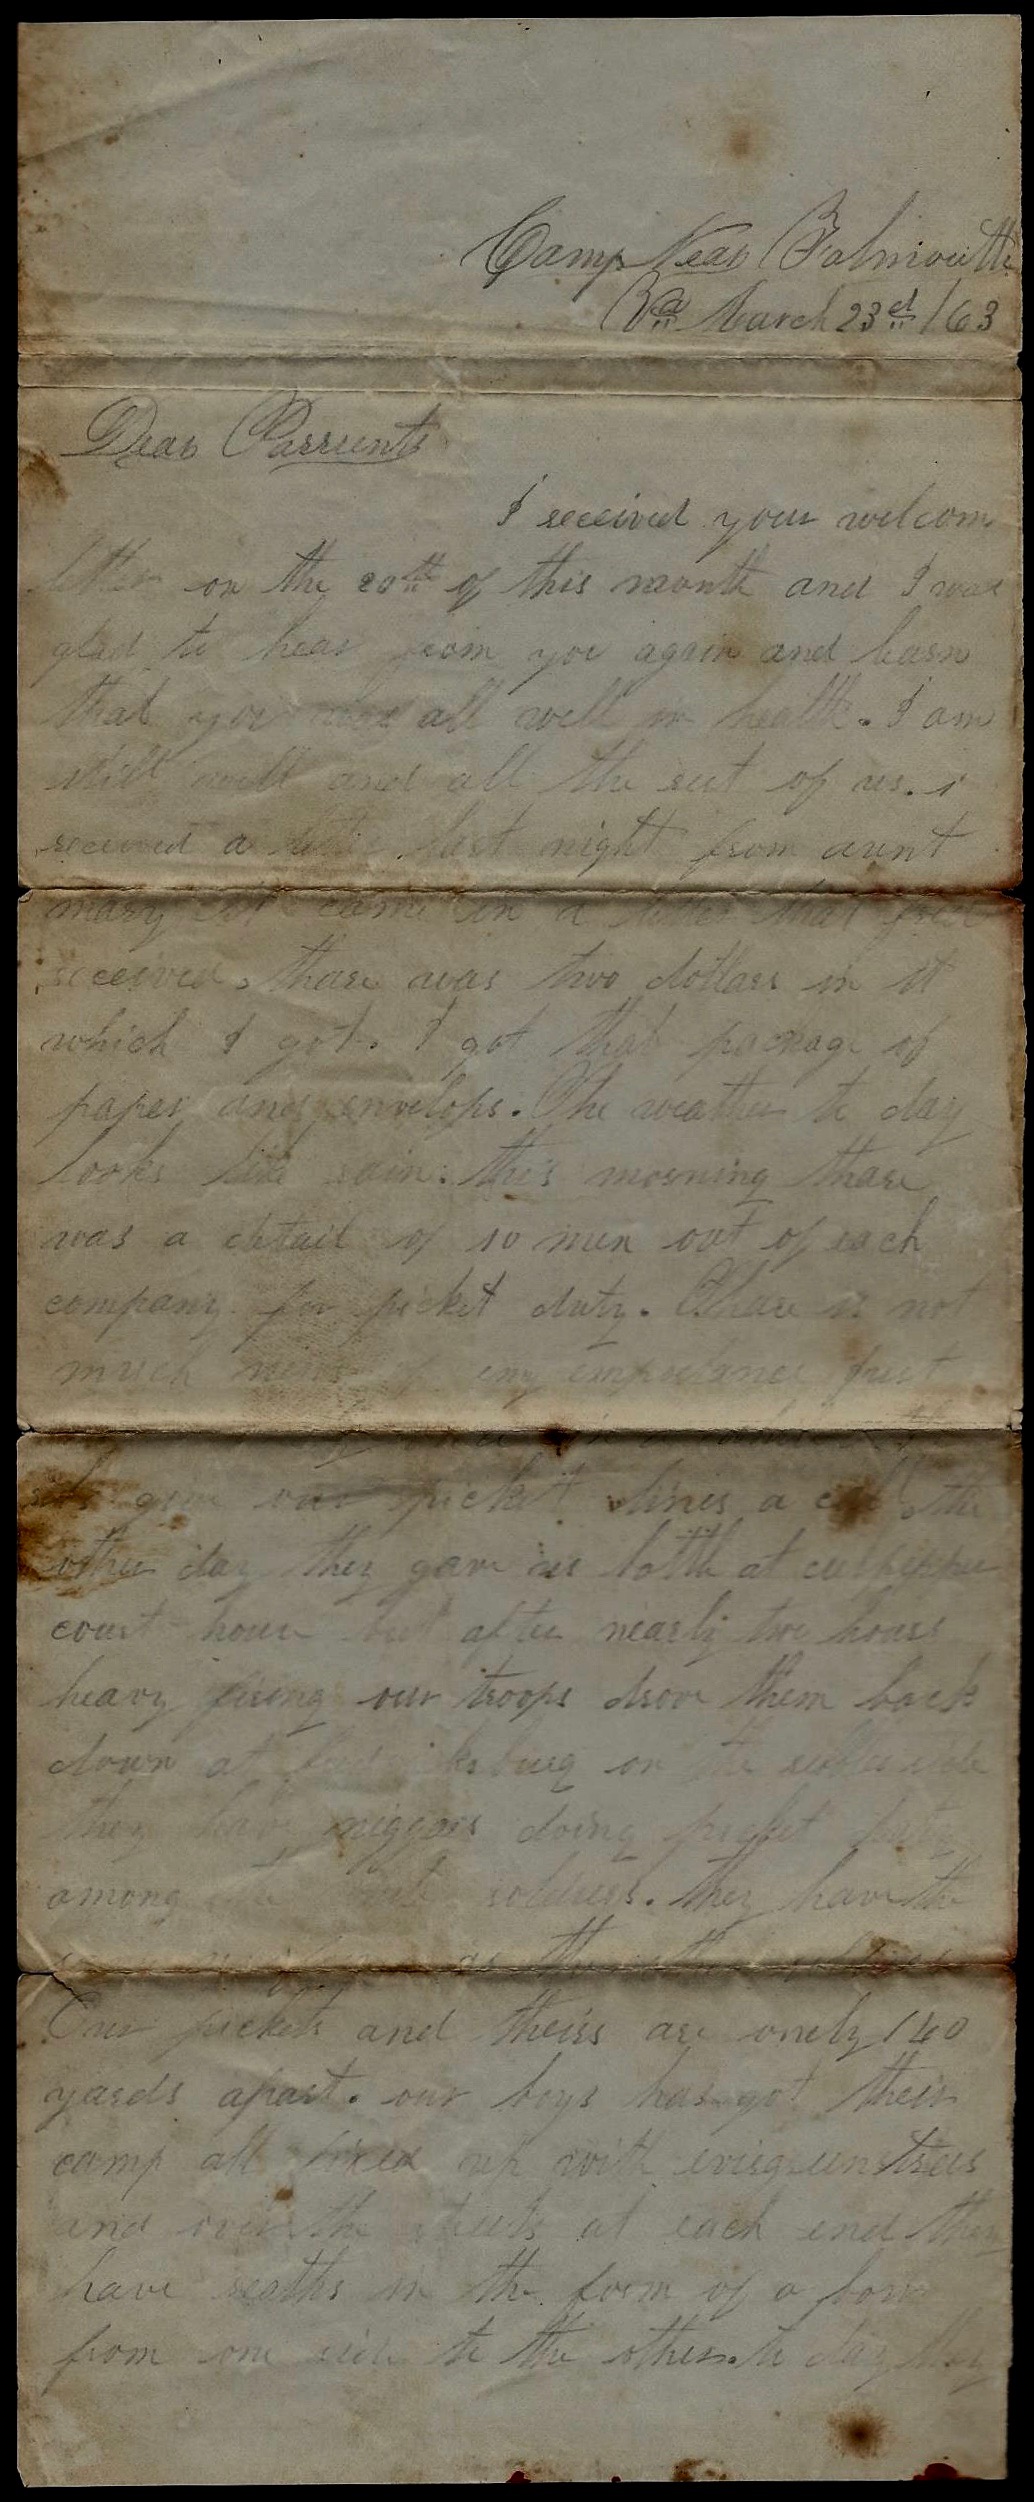 Camp Near Falmouth
Va March 23d /63
Dear Parrents
I received your welcom
letter on the 20th of this month and I was
glad to hear from you again and learn
that you was all well in health. I am
still well and all the rest of us. i
received a letter last night from aunt
mary it came in a letter that fred
received. thare was two dollars in it
which I got. I got that package of
paper and envelops. The weather to day
looks like rain. this morning thare
was a detail of 10 men out of each
company for picket duty. Thare is not
much news of any importance just
once in a while the
rebs give our picket lines a call. the
other day they gave us battle at culpepper
court house but after nearly two hours
heavy fireing our troops drove them back
down at fredricksburg on the rebble side
they have niggars doing picket duty
among the white soldiers. they have the
same uniform as the other soldiers
Our pickets and theirs are onely 140
yards apart. our boys has got their
camp all fixed up with evisgreens trees
and over the streets at each end they
have reaths in the form of a bow
from one side to the other. to day they